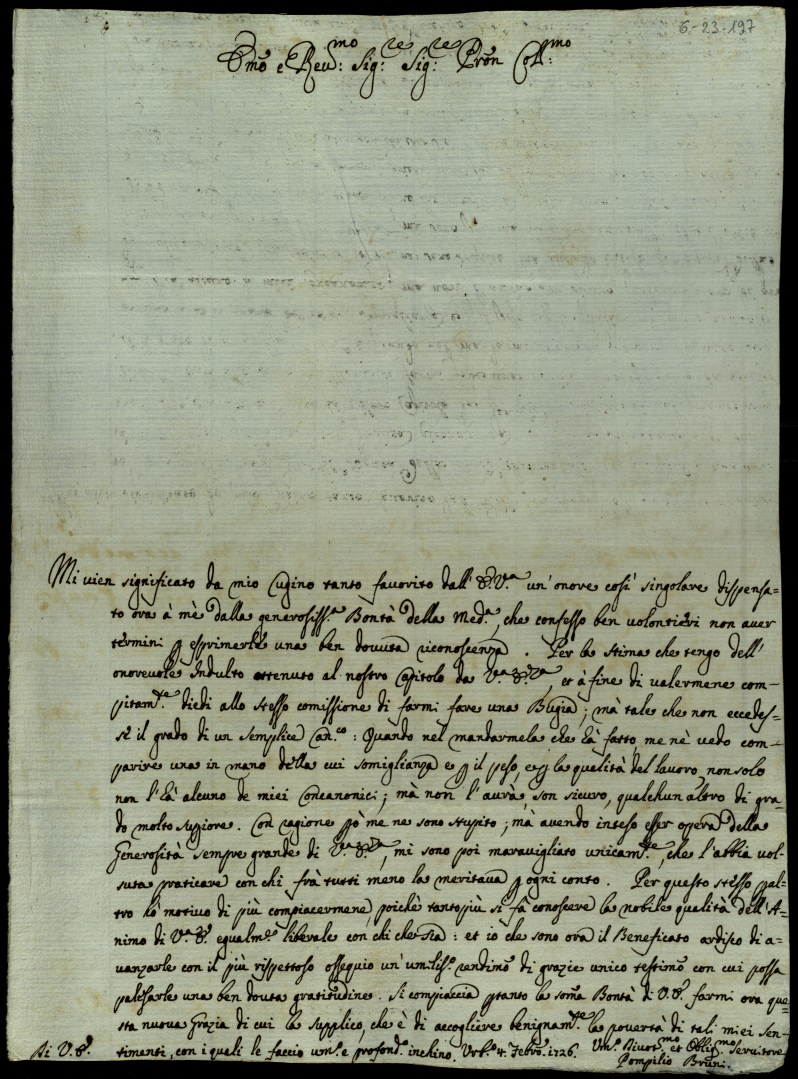 6-23-197
Illmo e Revd:mo Sig:re Sig:re Pron Coll:mo
Mi vien significato da mio Cugino tanto favorito dall' S.Va un' onore così singolare dispensa=
to ora à mè dalla generosissa Bontà della Meda, che confesso ben volontieri non aver
termini p esprimerle una ben dovuta riconoscenza. Per la stima che tengo dell'
onorevole Indulto ottenuto al nostro Capitolo da Va. S. Illma, et à fine di valermene com=
pitamte diedi allo stesso comissione di farmi fare una Bugia; mà tale che non ecceddes=
se il grado di un semplice Canco: Quando nel mandarmela che hà fatto, me nè vedo com=
parire una in mano della cui somiglianza e p il peso, e p la qualità del lavoro, non solo
non l'hà alcuno de miei Concanonici; mà non l'aurà, son sicuro, qualchun altro di gra=
do molto suppiore. Con cagione pò me ne sono stupito; mà avendo inteso esser opera della
Generosità sempre grande di Va. S. Illma, mi sono poi maravigliato unicamte, che l'abbia vol=
suta praticare con chi frà tutti meno la meritava p ogni conto. Per questo stesso pal=
tro hò motivo di più compiacermene, poiche tantopiù si fà conoscere la nobile qualità dell'A=
nimo di Va. S. egualmte liberale con chi che sia: et iò che sono ora il Beneficato ardisco di a=
vanzarle con il più rispettoso ossequio un' umiliss. rendimo di grazie unico testimo con cui possa
palesarle una ben douta gratitudine. Si compiaccia ptanto la soma Bontà di V.S. farmi ora que=
sta nuova Grazia di cui la supplico, che è di accogliere benignamte la povertà di tali miei Sen=
timenti, con i quali le faccio ume e profondo inchino. Urbo 4. Febro. 1726.
Di V.S.
Umo Divotmo et Obligmo Servitore
Pompilio Bruni.